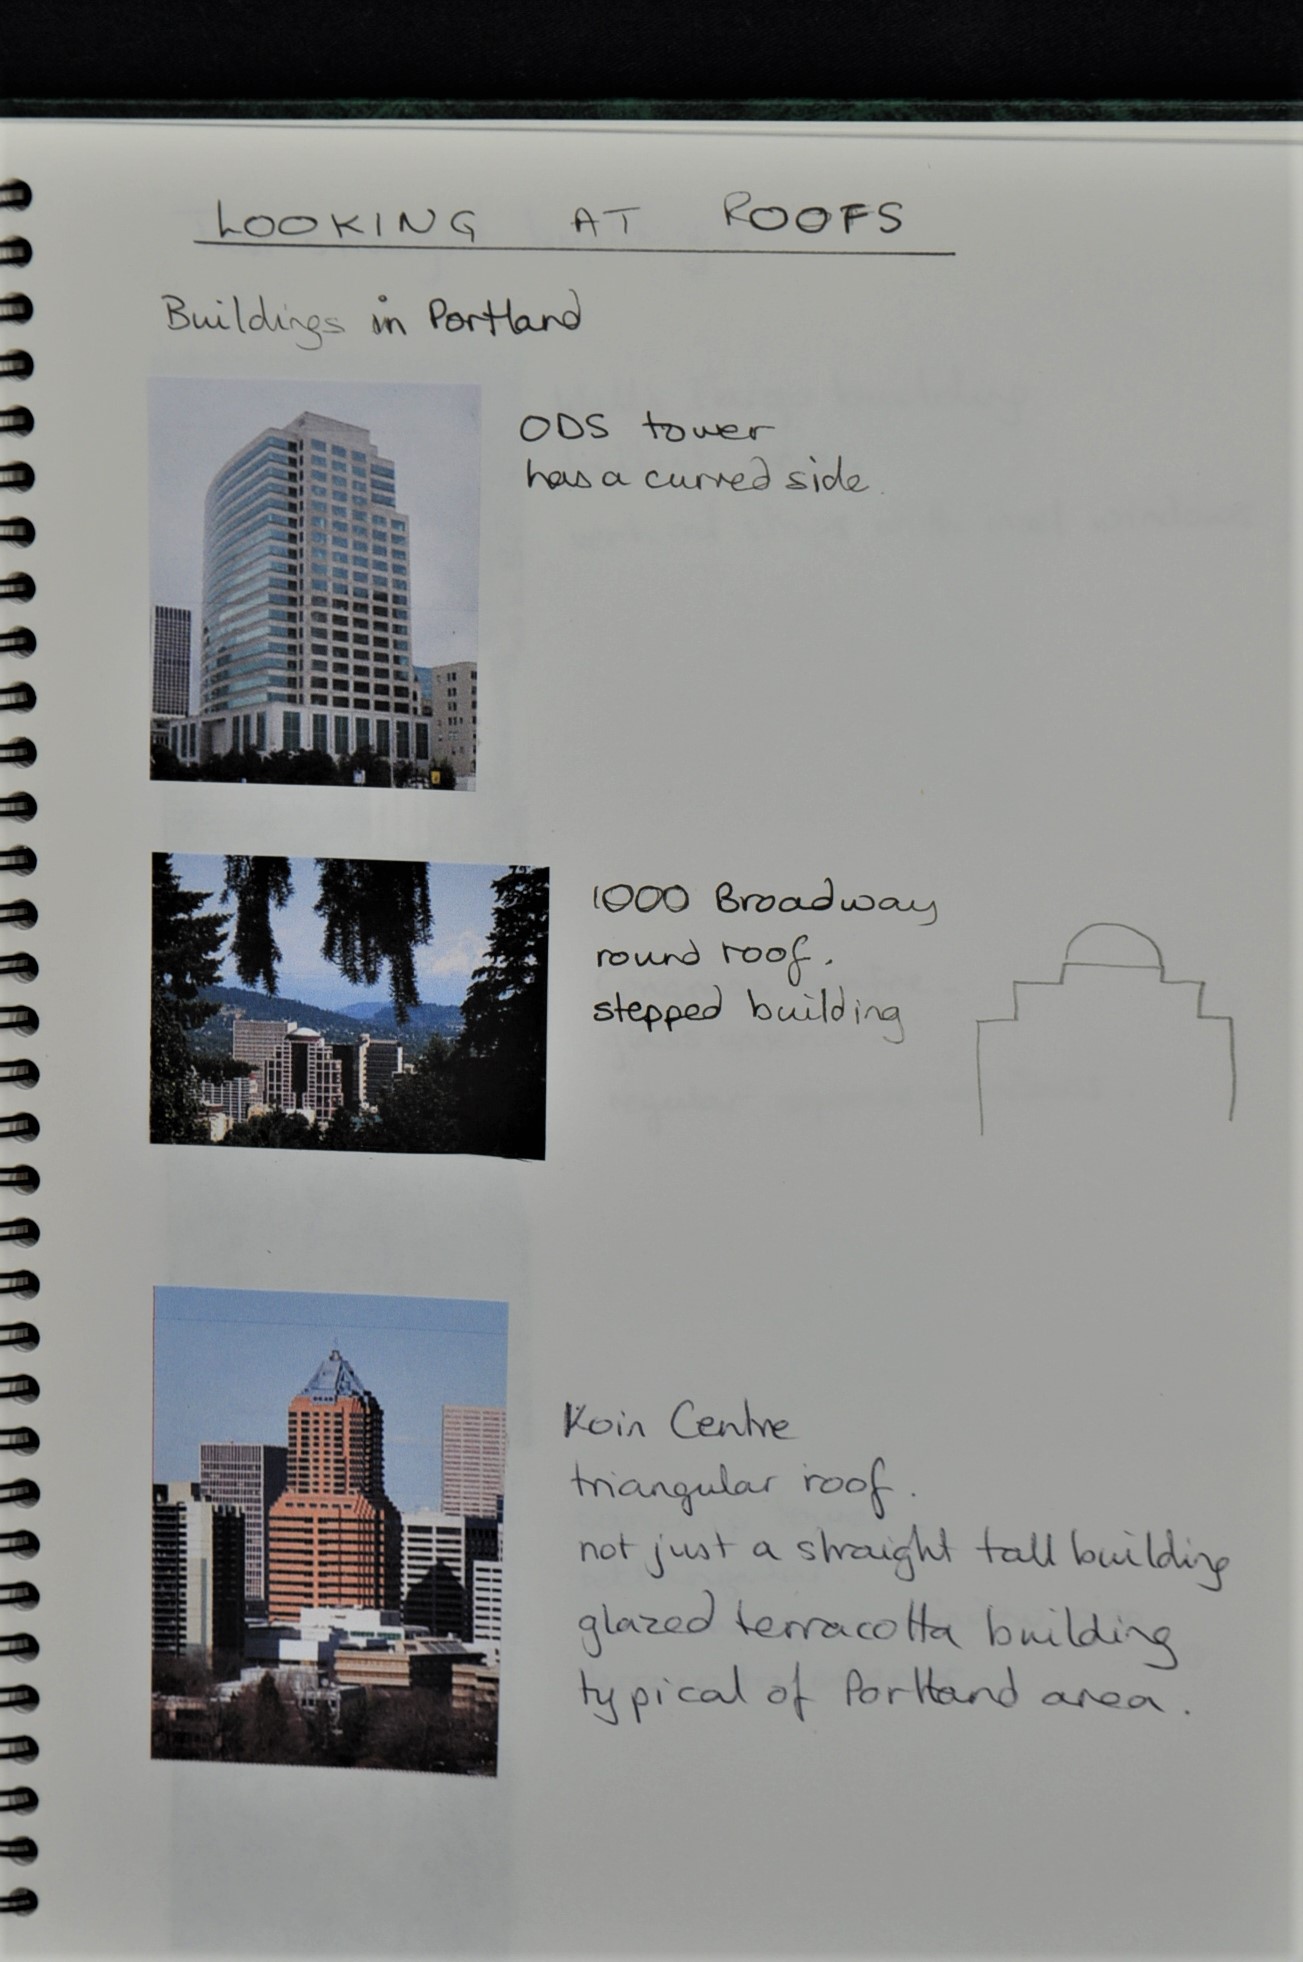 LOOKING AT ROOFS
Buildings in Portland
ODS tower
has a curved side.
1000 Broadway
round roof.
stepped building
Koin Centre
triangular roof.
not just a straight tall building
glazed terracotta building
typical of Portland area.